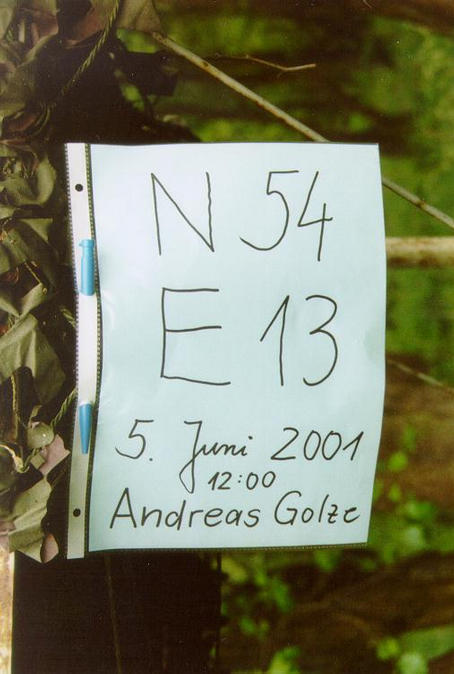 N 54
E 13
5. Juni 2001
12:00
Andreas Golze